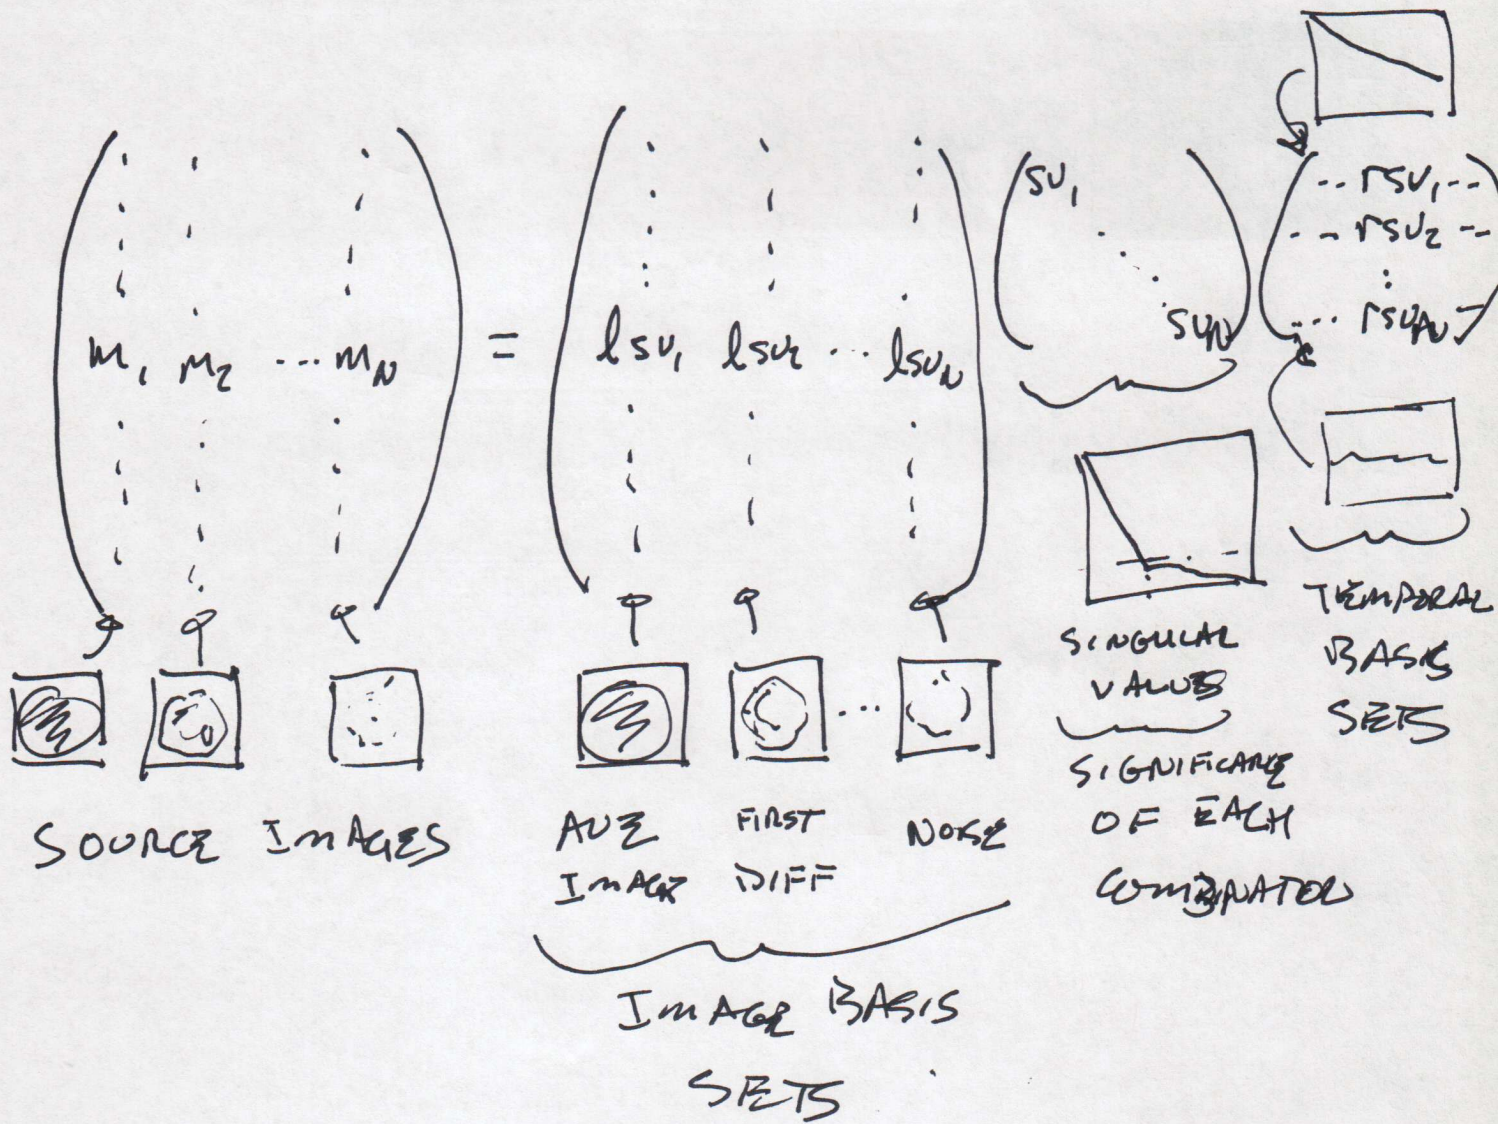 m₁ m₂ ... m_N = lsv₁ lsv₂ ... lsv_N
sv₁
sv_N
-- rsv₁ --
-- rsv₂ --
... rsv_N -
SOURCE IMAGES
AVE IMAGE
FIRST DIFF
NOISE
IMAGE BASIS
SETS
SINGULAR
VALUES
SIGNIFICANCE
OF EACH
COMBINATOR
TEMPORAL
BASIS
SETS